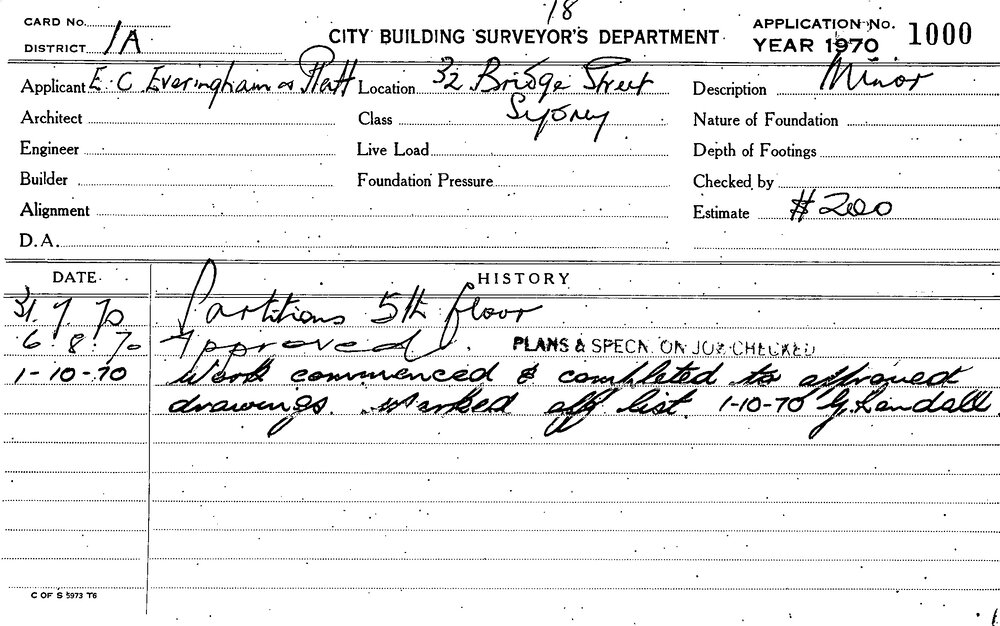 18
CARD No.
DISTRICT 1A
CITY BUILDING SURVEYOR'S DEPARTMENT
APPLICATION No. 1000
YEAR 1970
Applicant E. C. Everingham & Platt Location 32 Bridge Street Description Minor
Architect Class Sydney Nature of Foundation
Engineer Live Load Depth of Footings
Builder Foundation Pressure Checked by
Alignment Estimate $200
D.A.
DATE HISTORY
31.7.70 Partitions 5th floor
6.8.70 Approved. PLANS & SPECN. ON JOB CHECKED
1-10-70 Work commenced & completed to approved
drawings. Marked off list. 1-10-70 G. Randall.
C OF S 5973 T6